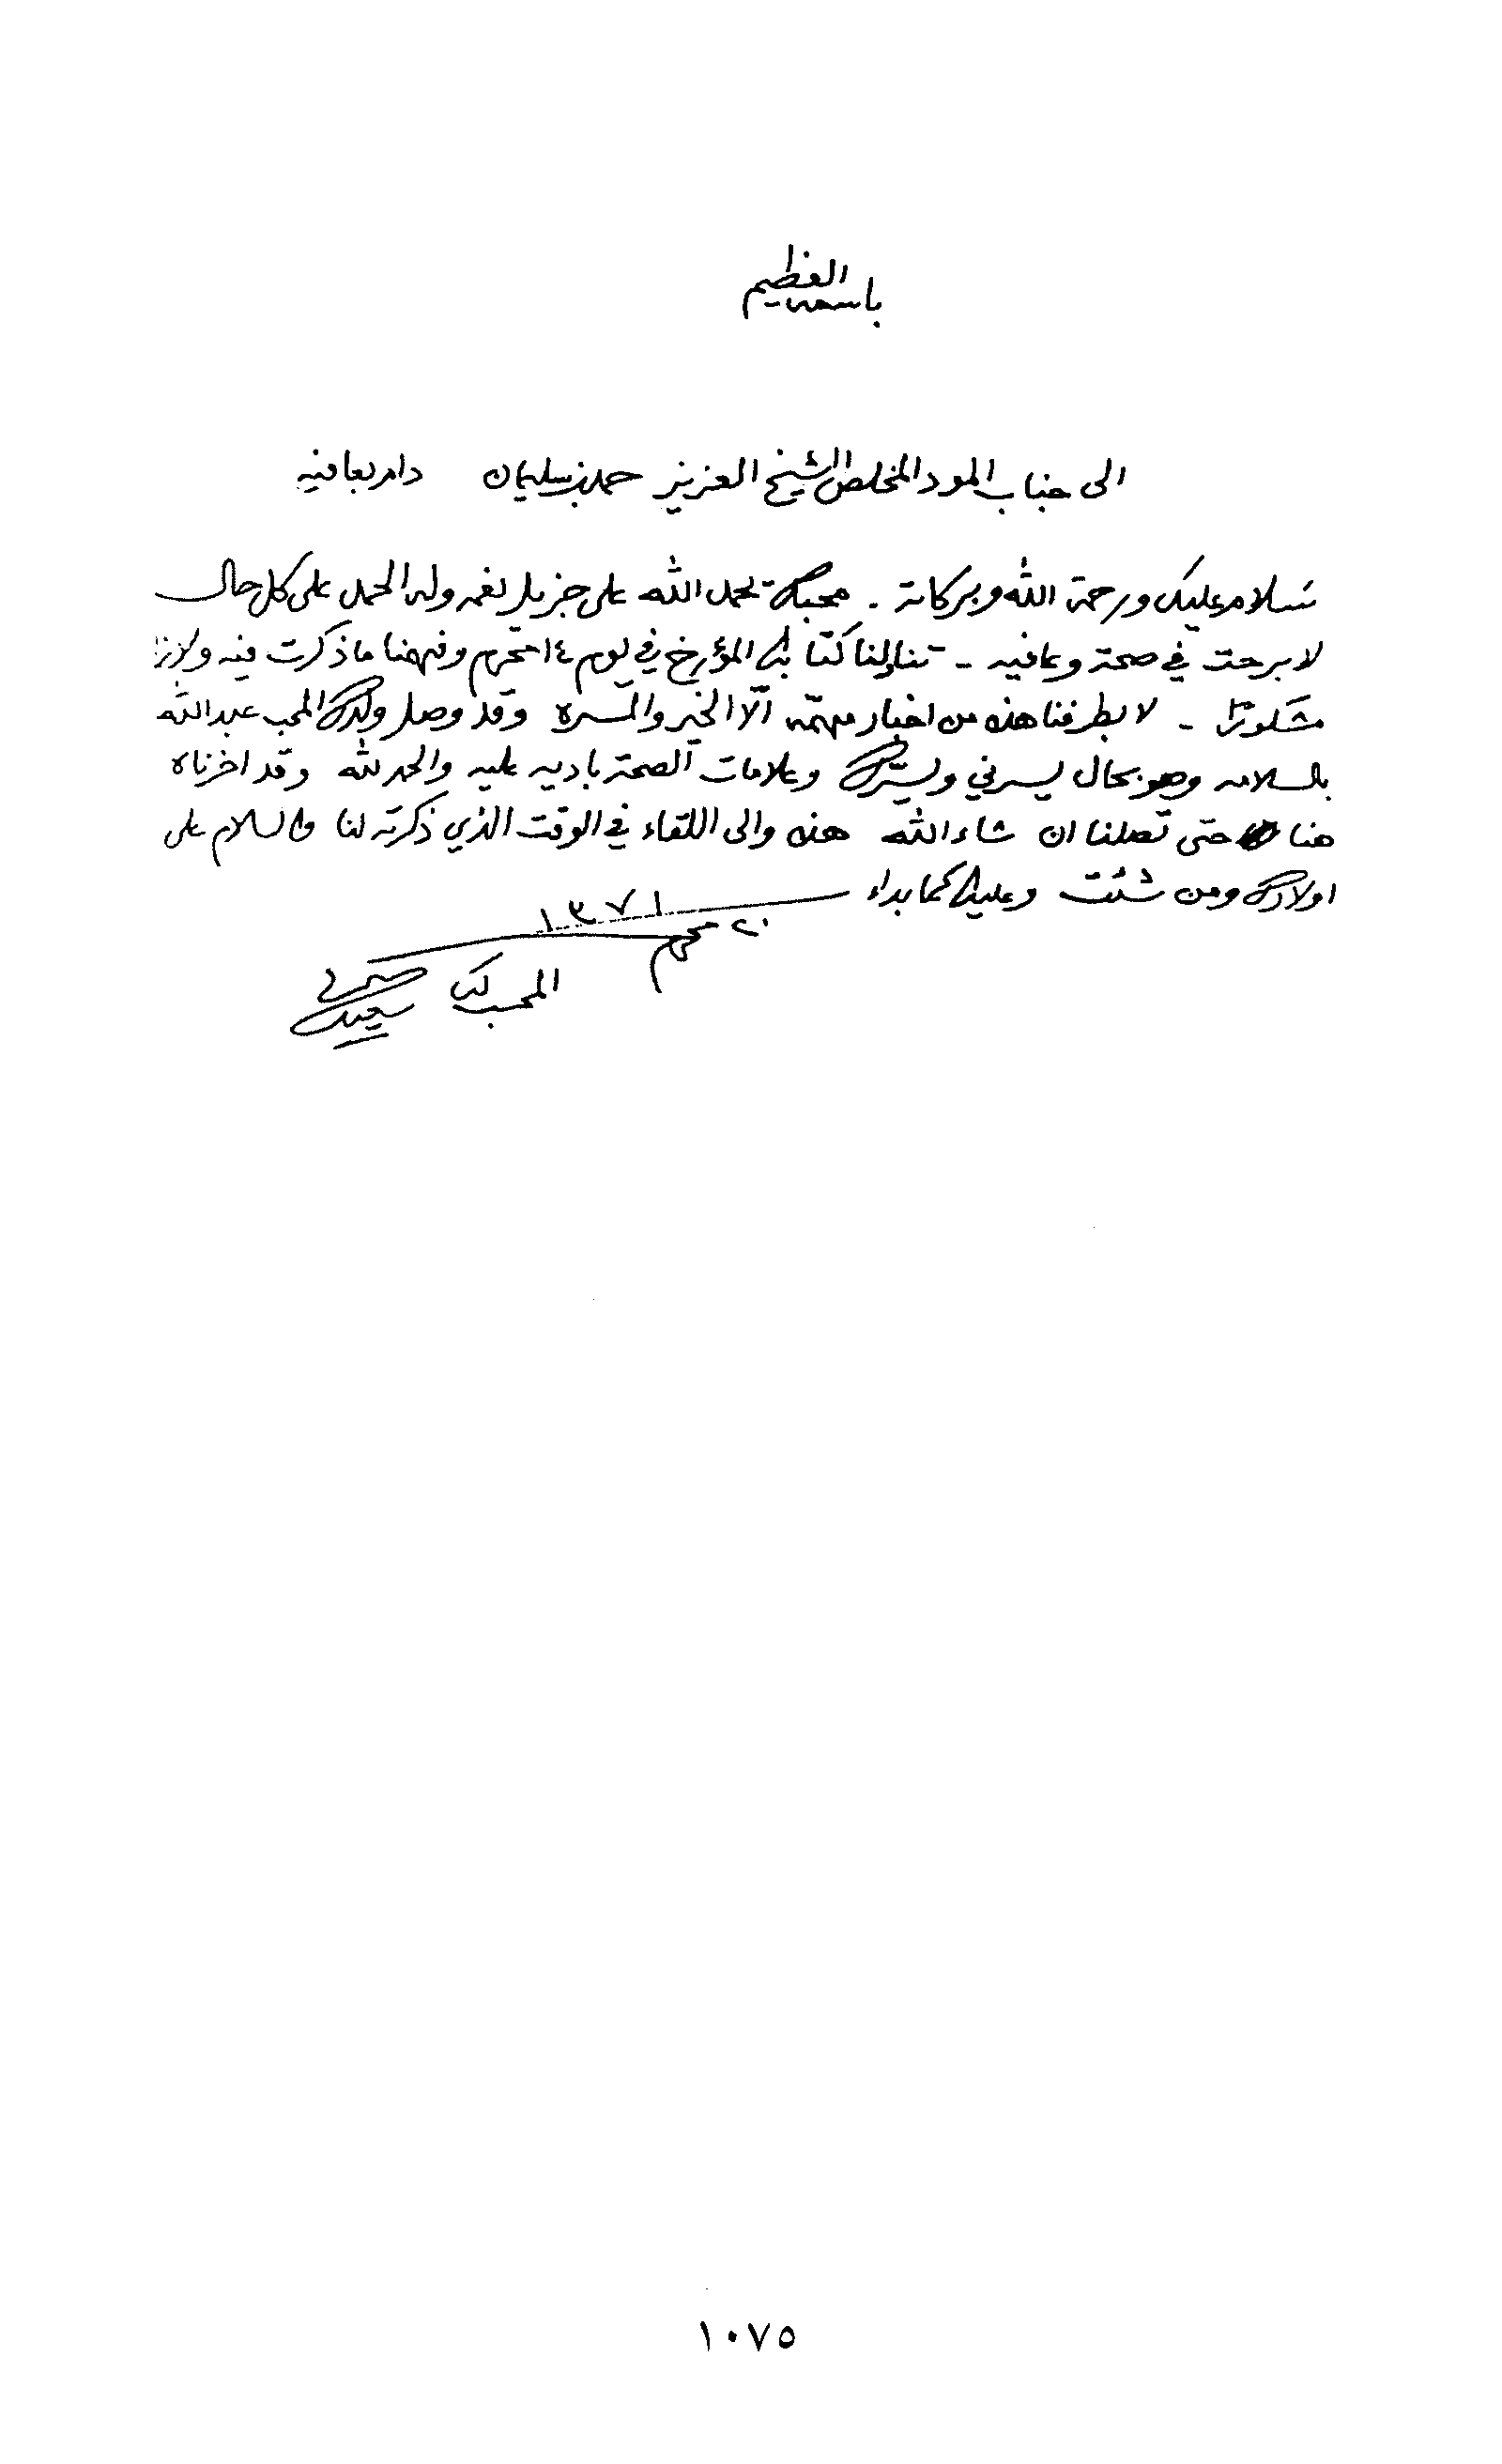 باسمه العظيم
الى جناب المود المخلص الشيخ العزيز حمد بن سليمان دام بعافيه
سلام عليك ورحمة الله وبركاته . محبك بحمد الله على جزيل نعمه وله الحمد على كل حال
لا برحت في صحة وعافيه - تناولنا كتابك المؤرخ في يوم ١٤ محرم وفهمنا ما ذكرت فيه ولا زلت
مشكورًا - لا بطرفنا هذه من اخبار مهمّه الّا الخير والمسره وقد وصل ولدك المحب عبدالله
بالسلامه وهو بحال يسرني ويسرك وعلامات الصحة باديه عليه والحمد لله وقد اخرناه
هنا حتى تصلنا ان شاء الله هذه والى اللقاء في الوقت الذي ذكرته لنا والسلام على
اولادك ومن شئت وعليك كما بداء
٢٠ محرم ١٣٧١
المحب لك
سعيد
١٠٧٥